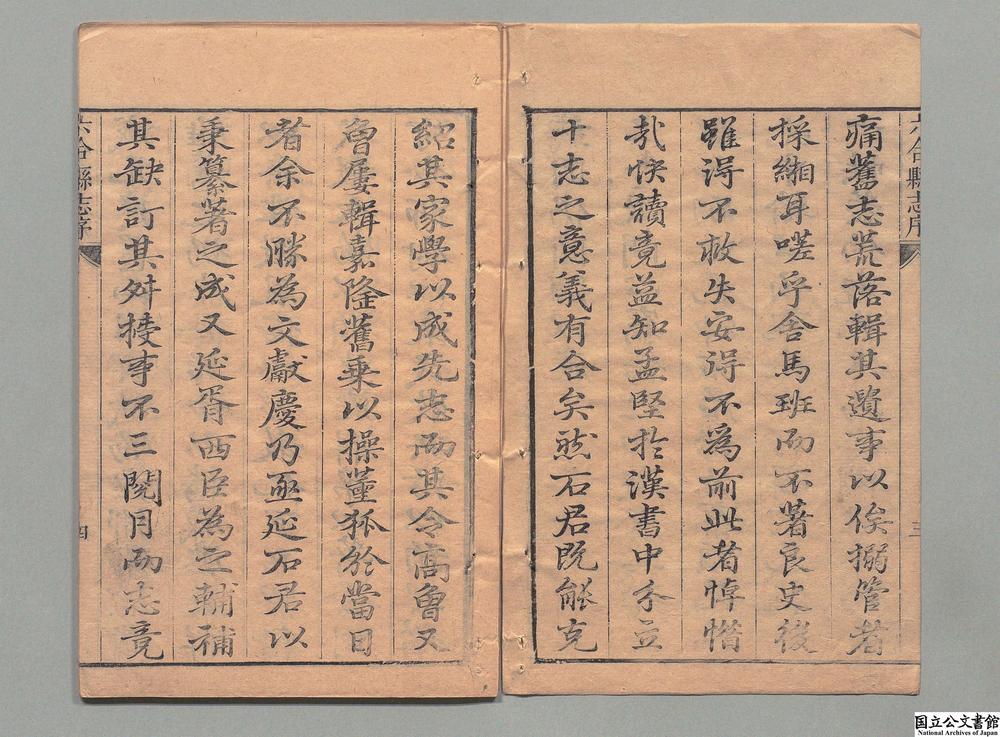 六合縣志序
三
痛舊志荒落輯其遺事以俟搦管者
採緗耳嗟乎舍馬班而不著良史後
雖得不救失安得不為前此者悼惜
哉快讀竟益知孟堅扵漢書中分立
十志之意義有合矣然石君既能克
紹其家學以成先志而其令高魯又
魯屢輯嘉隆舊乗以操董狐於當日
者余不勝為文獻慶乃亟延石君以
秉纂著之成又延胥西臣為之輔補
其缺訂其舛接事不三閱月而志竟
六合縣志序
四
国立公文書館
National Archives of Japan